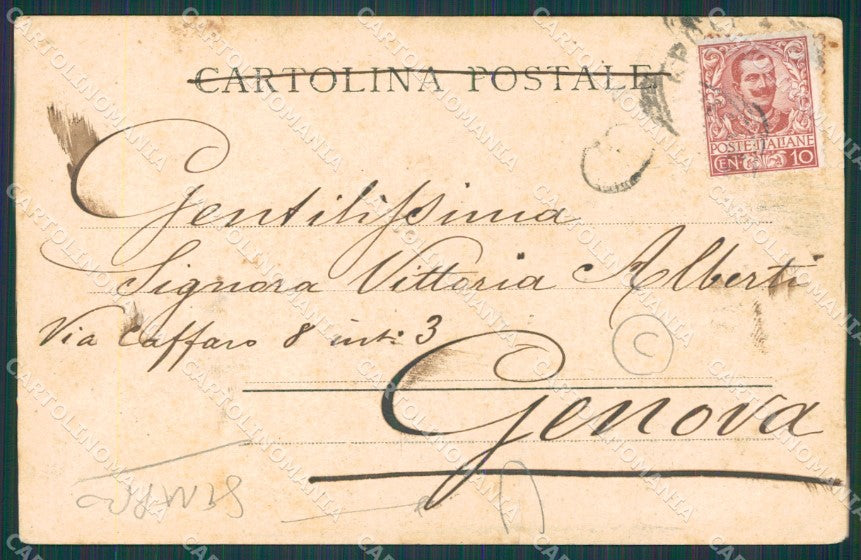 CARTOLINA POSTALE
POSTE ITALIANE
CEN. 10
Gentilissima
Signora Vittoria Alberti
Via Caffaro 8 int: 3
C
Genova
CARTOLINOMANIA